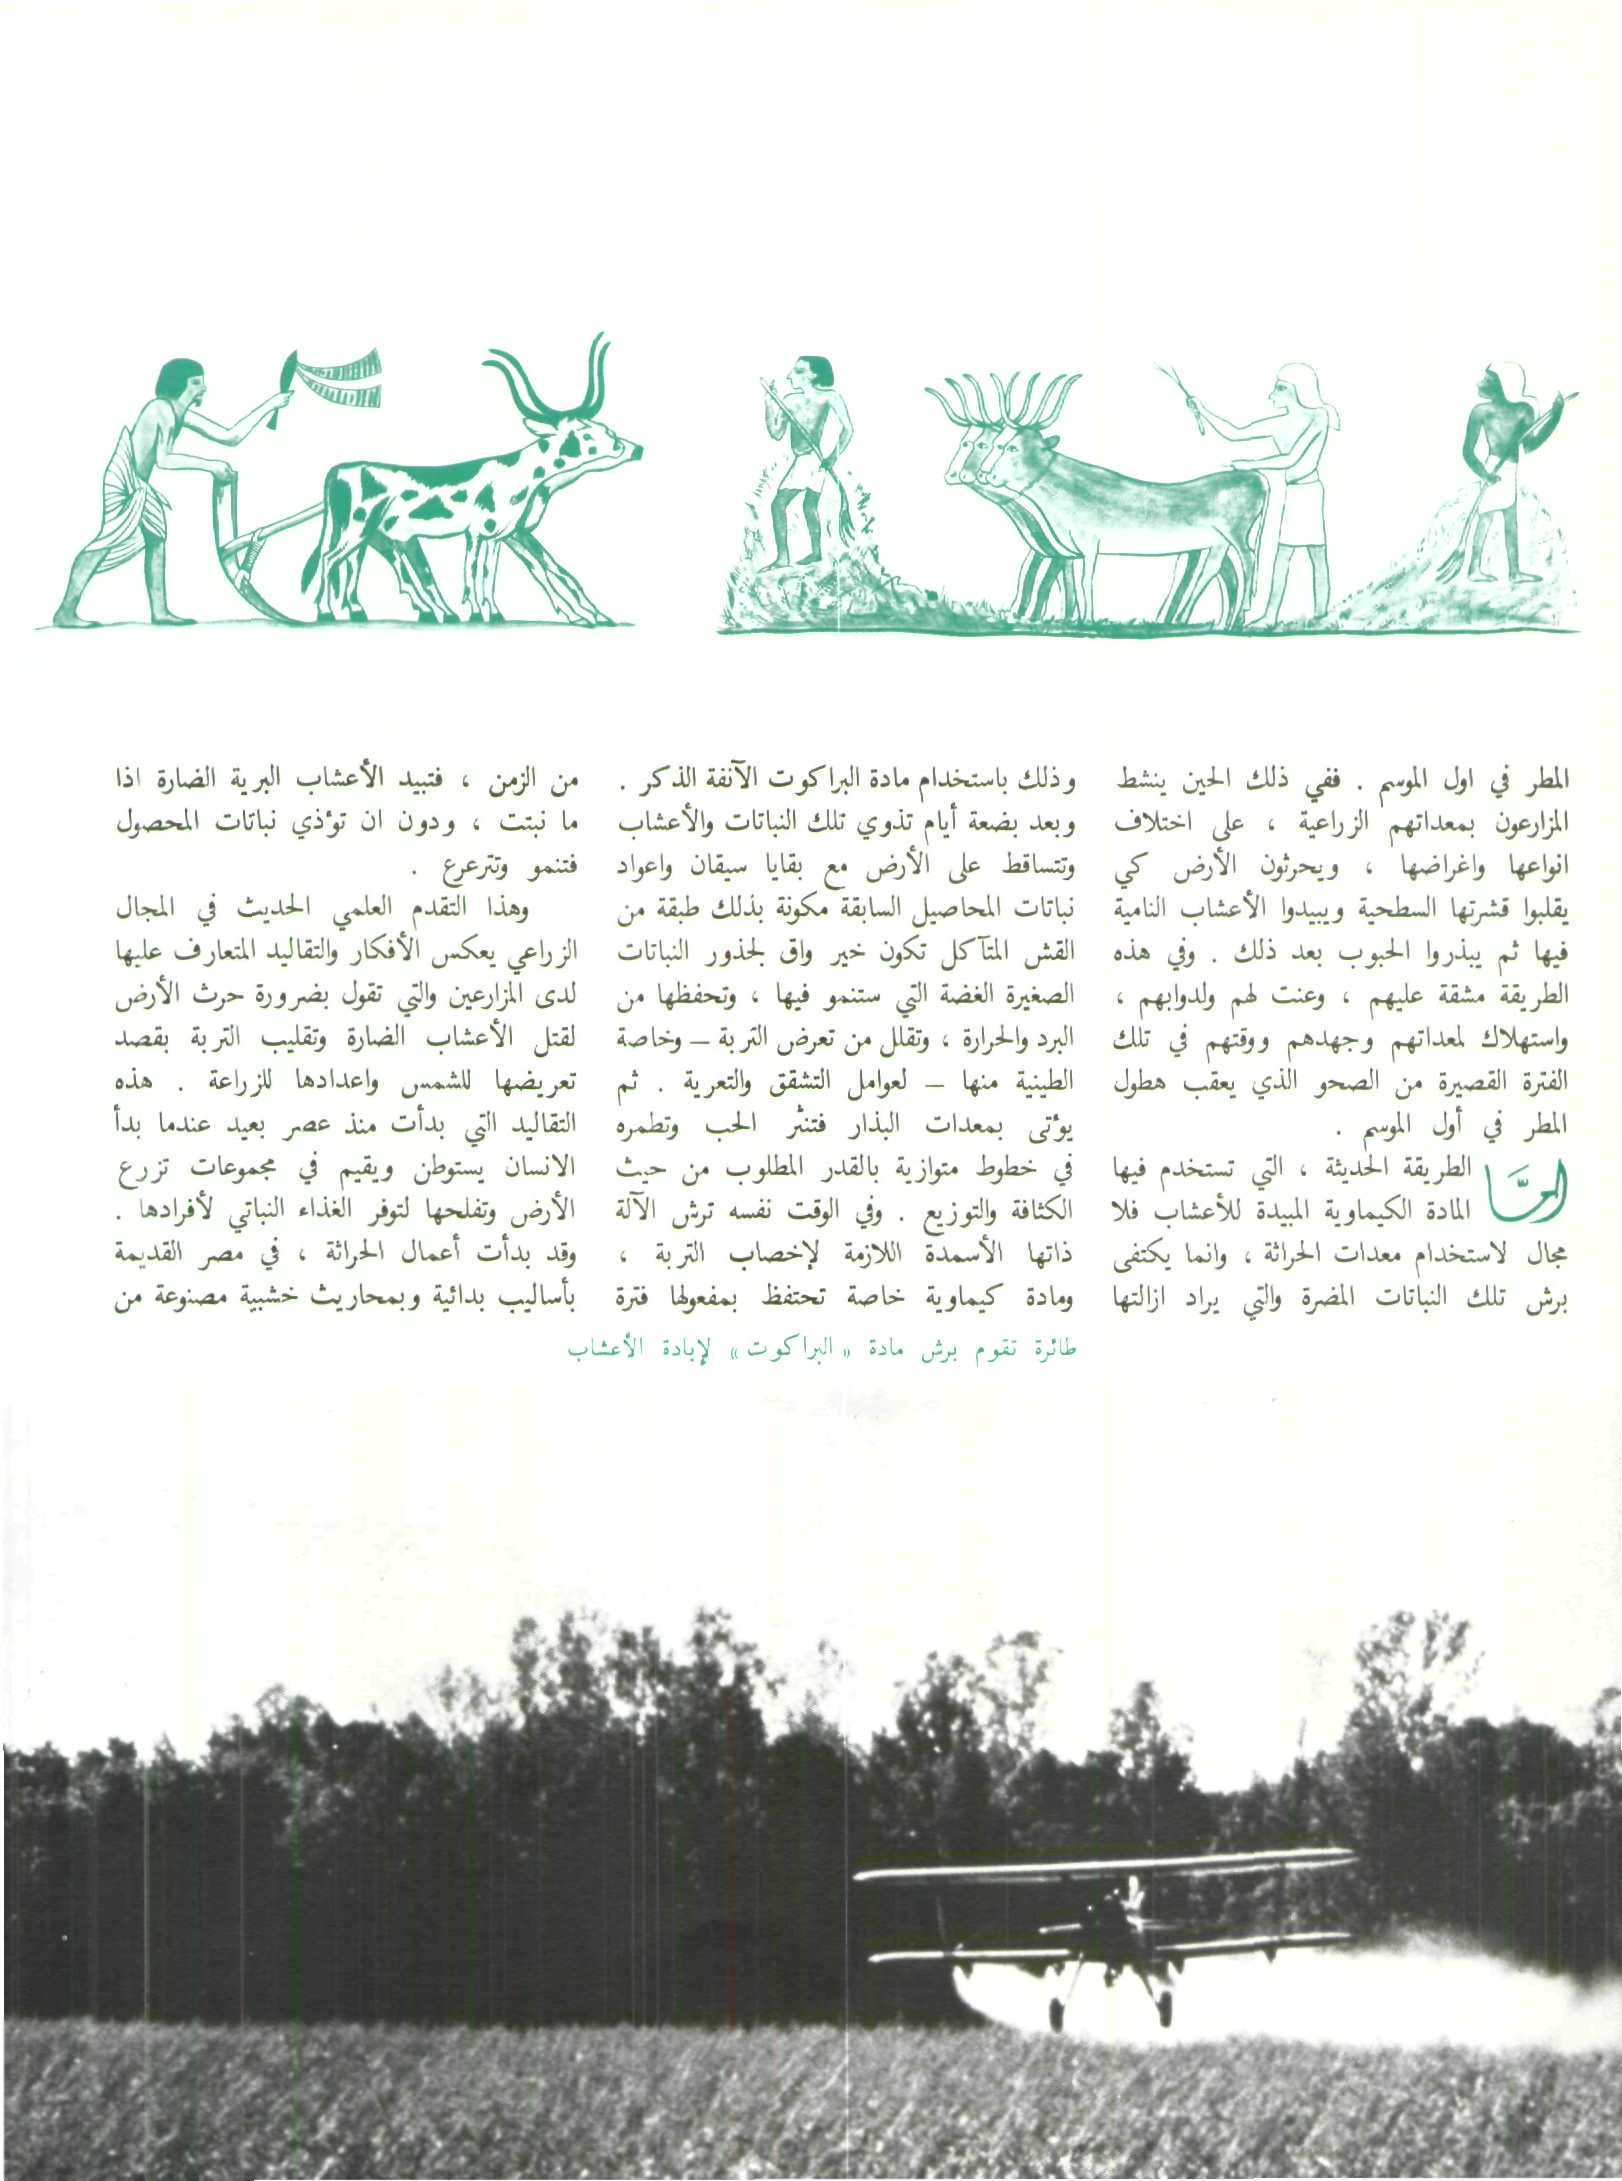 المطر في اول الموسم . ففي ذلك الحين ينشط
المزارعون بمعداتهم الزراعية ، على اختلاف
انواعها واغراضها ، ويحرثون الأرض كي
يقلبوا قشرتها السطحية ويبيدوا الأعشاب النامية
فيها ثم يبذروا الحبوب بعد ذلك . وفي هذه
الطريقة مشقة عليهم ، وعنت لهم ولدوابهم ،
واستهلاك لمعداتهم وجهدهم ووقتهم في تلك
الفترة القصيرة من الصحو الذي يعقب هطول
المطر في أول الموسم .
امّا الطريقة الحديثة ، التي تستخدم فيها
المادة الكيماوية المبيدة للأعشاب فلا
مجال لاستخدام معدات الحراثة ، وانما يكتفى
برش تلك النباتات المضرة والتي يراد ازالتها
وذلك باستخدام مادة البراكوت الآنفة الذكر .
وبعد بضعة أيام تذوي تلك النباتات والأعشاب
وتتساقط على الأرض مع بقايا سيقان واعواد
نباتات المحاصيل السابقة مكونة بذلك طبقة من
القش المتآكل تكون خير واق لجذور النباتات
الصغيرة الغضة التي ستنمو فيها ، وتحفظها من
البرد والحرارة ، وتقلل من تعرض التربة – وخاصة
الطينية منها – لعوامل التشقق والتعرية . ثم
يؤتى بمعدات البذار فتنثر الحب وتطمره
في خطوط متوازية بالقدر المطلوب من حيث
الكثافة والتوزيع . وفي الوقت نفسه ترش الآلة
ذاتها الأسمدة اللازمة لإخصاب التربة ،
ومادة كيماوية خاصة تحتفظ بمفعولها فترة
من الزمن ، فتبيد الأعشاب البرية الضارة اذا
ما نبتت ، ودون ان تؤذي نباتات المحصول
فتنمو وتترعرع .
وهذا التقدم العلمي الحديث في المجال
الزراعي يعكس الأفكار والتقاليد المتعارف عليها
لدى المزارعين والتي تقول بضرورة حرث الأرض
لقتل الأعشاب الضارة وتقليب التربة بقصد
تعريضها للشمس واعدادها للزراعة . هذه
التقاليد التي بدأت منذ عصر بعيد عندما بدأ
الانسان يستوطن ويقيم في مجموعات تزرع
الأرض وتفلحها لتوفر الغذاء النباتي لأفرادها .
وقد بدأت أعمال الحراثة ، في مصر القديمة
بأساليب بدائية وبمحاريث خشبية مصنوعة من
طائرة تقوم برش مادة «البراكوت» لإبادة الأعشاب